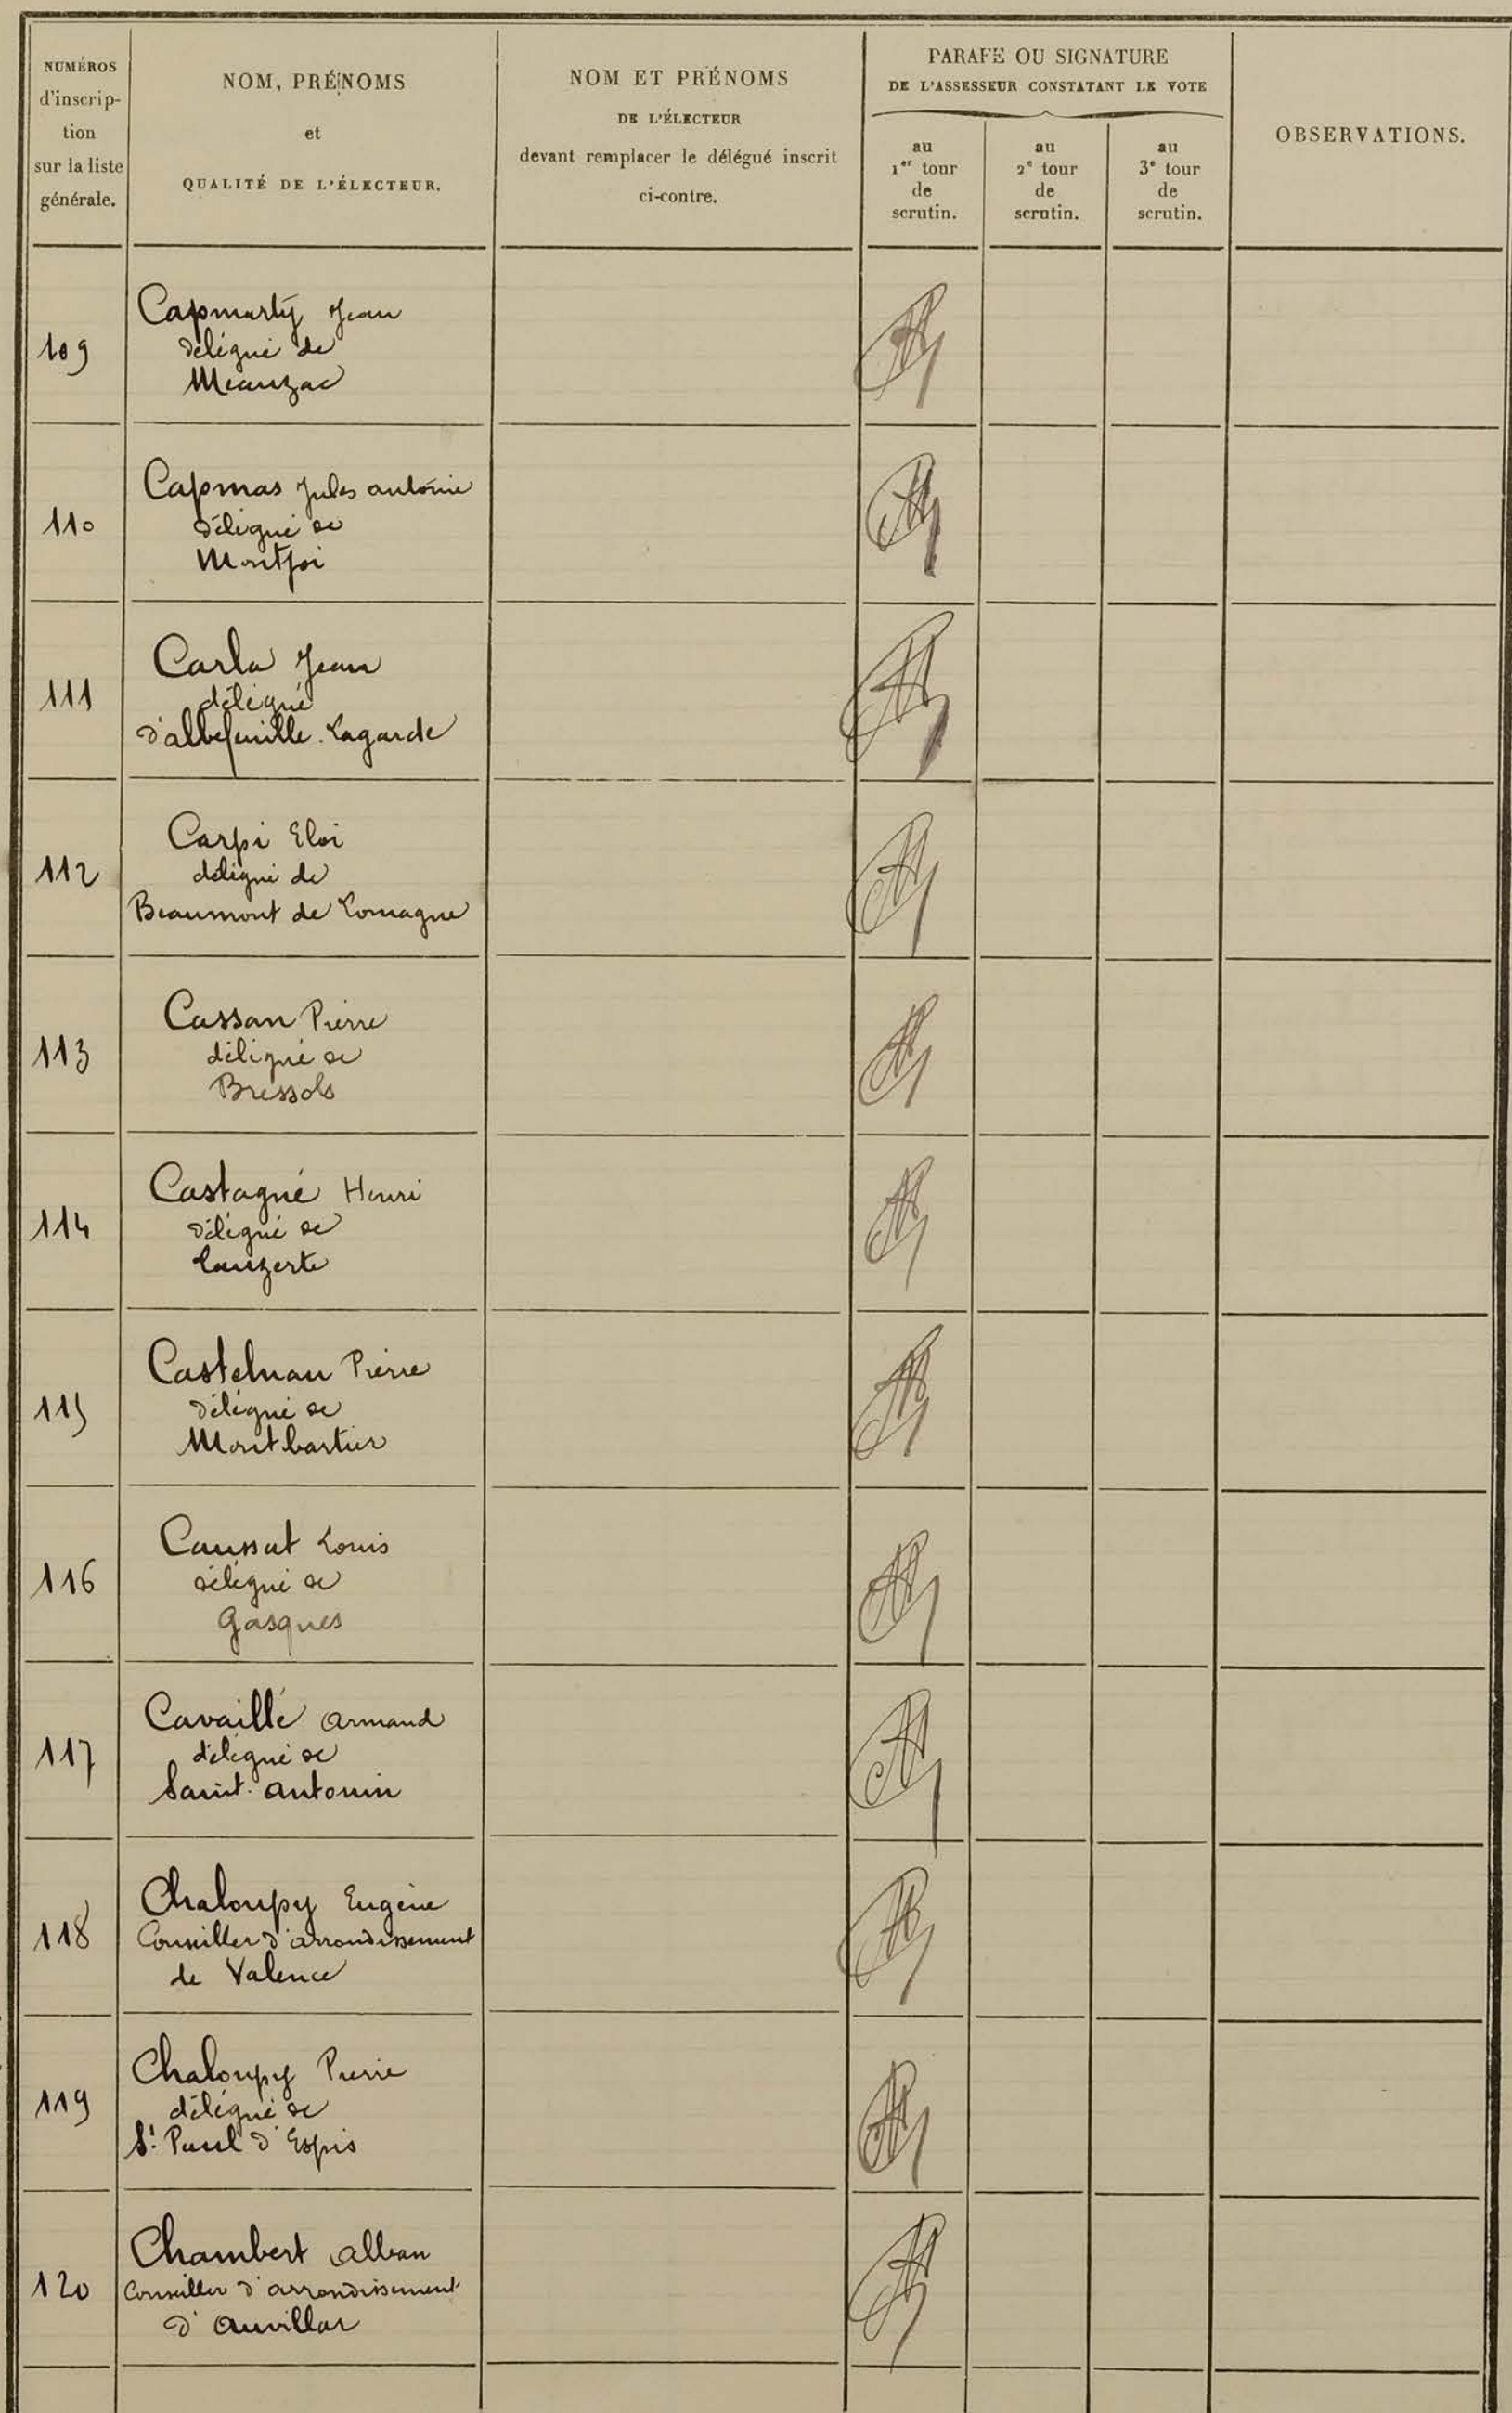 NUMÉROS
d'inscrip-
tion
sur la liste
générale.
NOM, PRÉNOMS
et
QUALITÉ DE L'ÉLECTEUR.
NOM ET PRÉNOMS
DE L'ÉLECTEUR
devant remplacer le délégué inscrit
ci-contre.
PARAFE OU SIGNATURE
DE L'ASSESSEUR CONSTATANT LE VOTE
au
1er tour
de
scrutin.
au
2e tour
de
scrutin.
au
3e tour
de
scrutin.
OBSERVATIONS.
109
Capmarty Jean
délégué de
Meauzac
110
Capmas Jules antoine
délégué de
Montjoi
111
Carla Jean
délégué
d'albefeuille-Lagarde
112
Carpi Eloi
délégué de
Beaumont de Lomagne
113
Cassan Pierre
délégué de
Bressols
114
Castagné Henri
délégué de
Lauzerte
115
Castelnau Pierre
délégué de
Montbartier
116
Caussat Louis
délégué de
Gasques
117
Cavaillé armand
délégué de
Saint-antonin
118
Chaloupy Eugène
Conseiller d'arrondissement
de Valence
119
Chaloupy Pierre
délégué de
St Paul d'Espis
120
Chambert alban
Conseiller d'arrondissement
d'auvillar